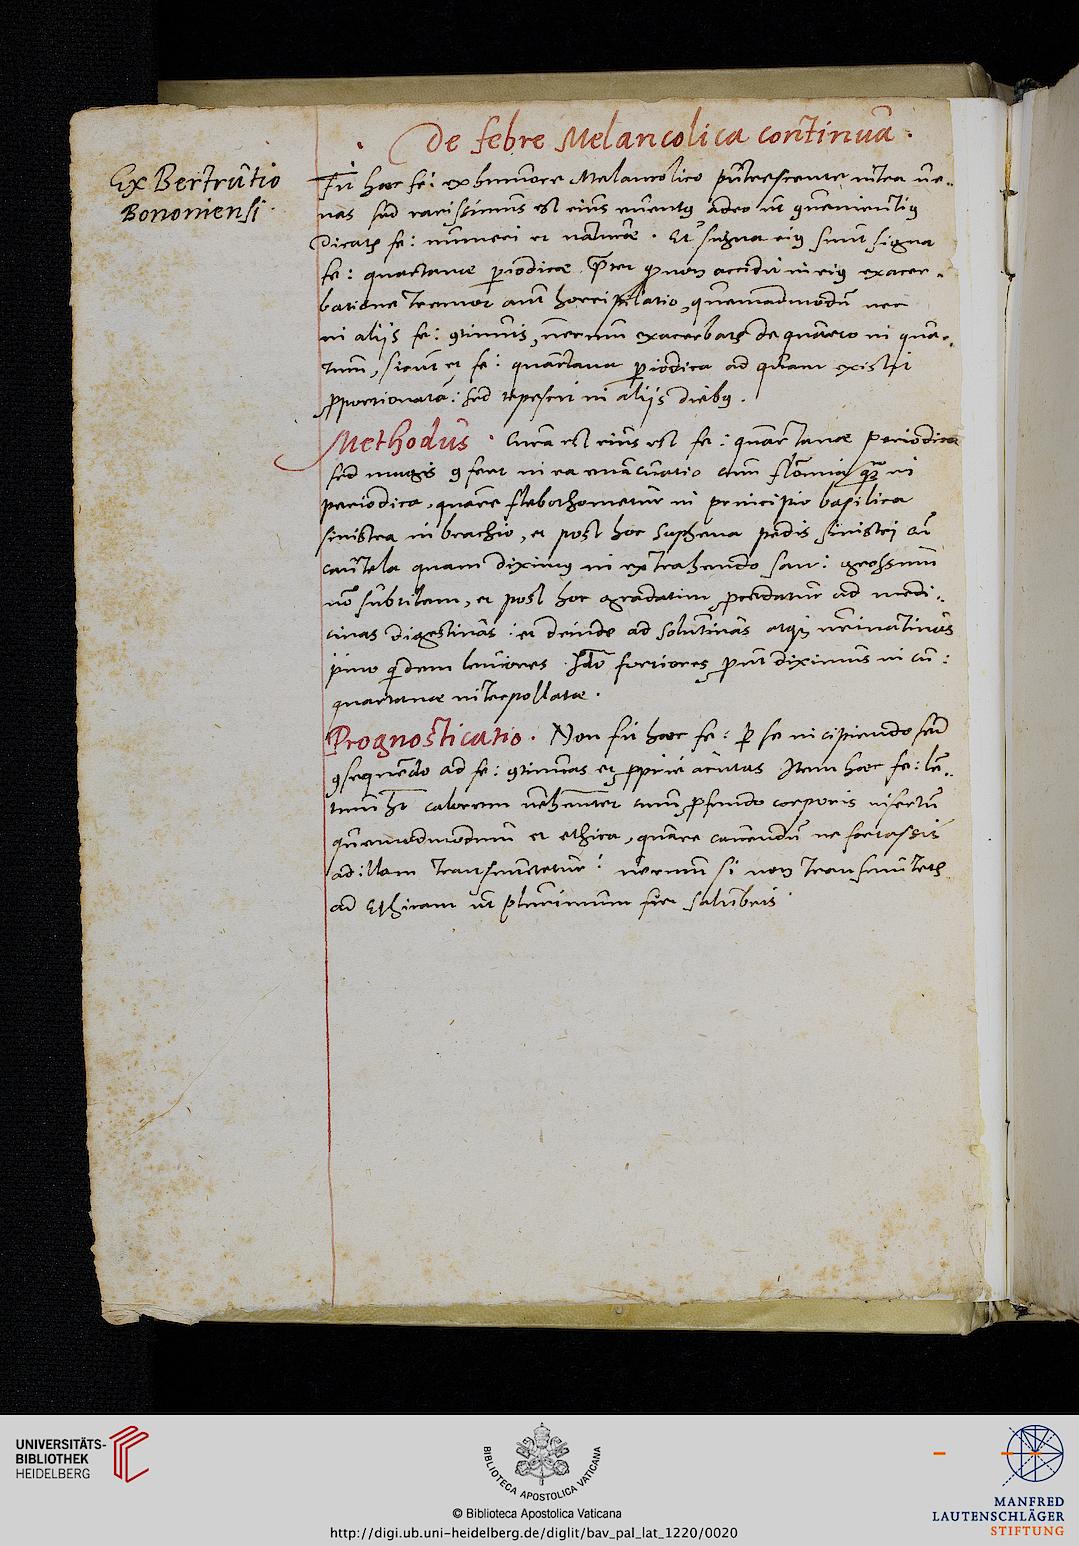 De febre Melancolica contínuá ·
Ex Bertrútio
Bononiensi ·
Fit haec fe: ex humore Melancolico pútrescente intra ve-
nas sed rarissimus est eius eventꝰ adeo ut ꝯvenientiꝰ
Dicatr fe: numeri et naturae · Et signa eiꝰ sunt signa
fe: quartanae periodicae. Praeter quod non accidit in eiꝰ exacer-
batione tremor aut horripilatio, quemadmodū nec
in aliis fe: ꝯtinuis, nerum exacerbatr de quarto in quar-
tum, sicut et fe: quartana periodica ad quam existit
proportionata: sed repescit in aliis diebꝰ.
Methodus · Cura est eius est fe: quartanae periodicae
sed magis ꝯfert in ea evacuatio cum flomia quam in
periodica, quare flebothometur in principio basilica
sinistra in brachio, et post hoc saphena pedis sinistri cū
cautela quam diximꝰ in extrahendo san: grossum
nō subtilem, et post hoc gradatim procedatur ad medi-
cinas digestivas: et deinde ad solutivas atqꝫ urinativas
primo quidem leviores. Secūdo fortiores, prout diximus in cu:
quartanae interpollatae.
Prognosticatio · Non fit haec fe: per se incipiendo sed
ꝯsequendo ad fe: ꝯtinuas et proprie acutas. Item haec fe: len-
tum ht calorem vehementer cum profundo corporis insertū
quemadmodum et ethica, quare cavendū ne fortassis
ad illam transmutetur: verum si non transmutetr
ad Ethicam ut plurimum fiet salubris
UNIVERSITÄTS-
BIBLIOTHEK
HEIDELBERG
BIBLIOTECA APOSTOLICA VATICANA
© Biblioteca Apostolica Vaticana
http://digi.ub.uni-heidelberg.de/diglit/bav_pal_lat_1220/0020
MANFRED
LAUTENSCHLÄGER
STIFTUNG